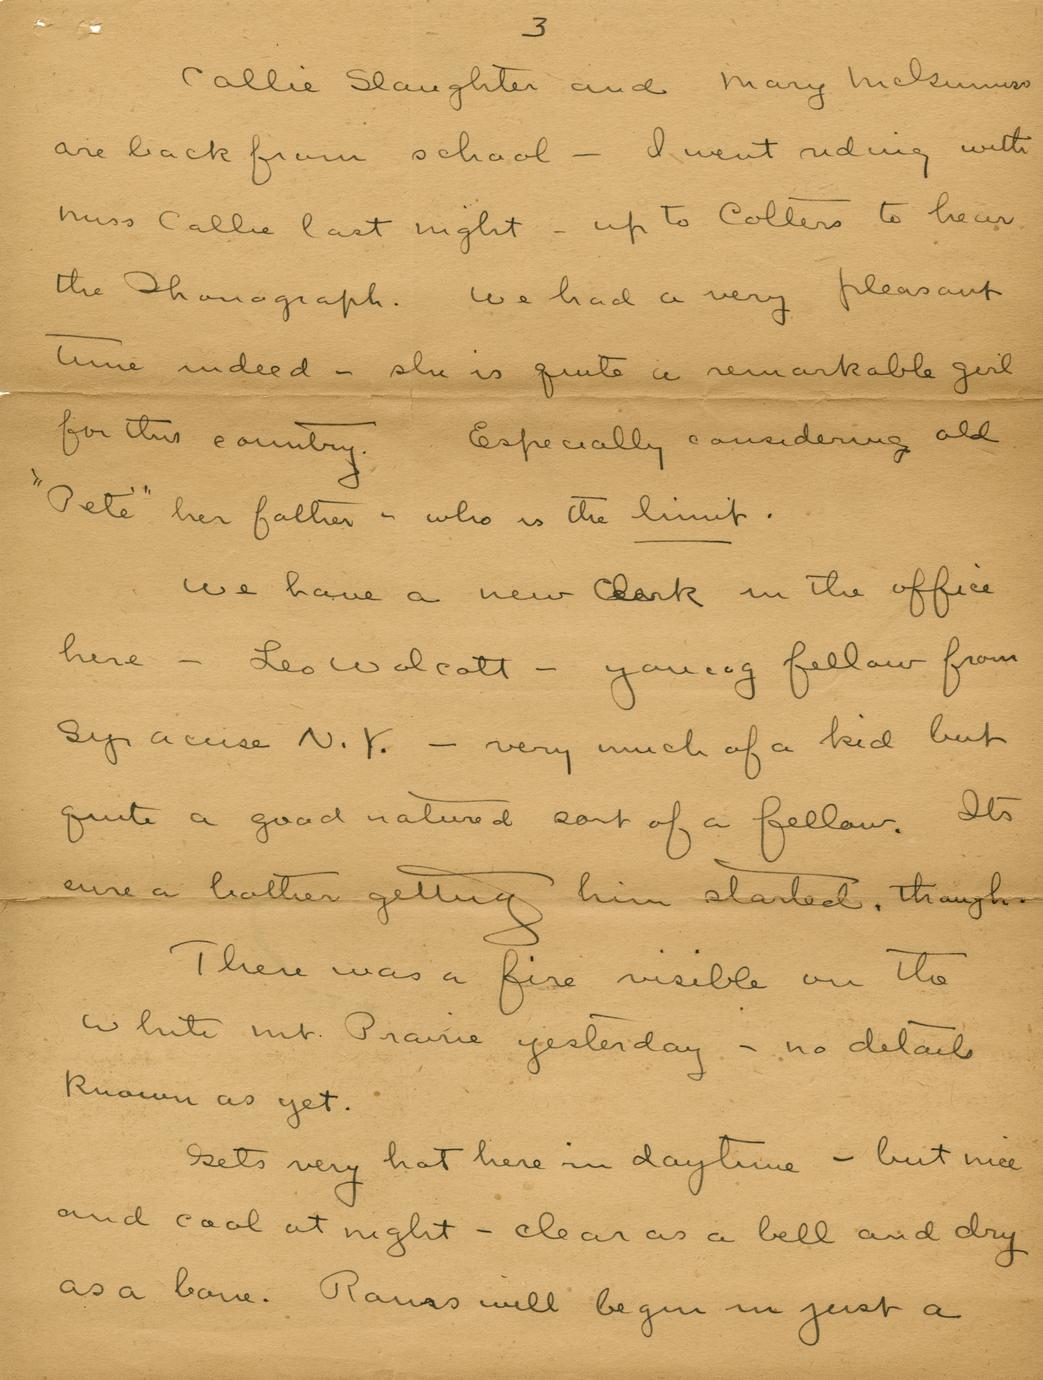 3
Callie Slaughter and Mary
are back from school – I went riding with
Miss Callie last night – up to Colters to hear
the Phonograph. We had a very pleasant
time indeed – she is quite a remarkable girl
for this country. Especially considering old
"Pete" her father – who is the limit.
We have a new Clerk in the office
here – Leo Wolcott – young fellow from
Syracuse N.Y. – very much of a kid but
quite a good natured sort of a fellow. Its
sure a bother getting him started, though.
There was a fire visible on the
White Mt. Prairie yesterday – no details
known as yet.
Gets very hot here in daytime – but nice
and cool at night – clear as a bell and dry
as a bone. Rains will begin in just a